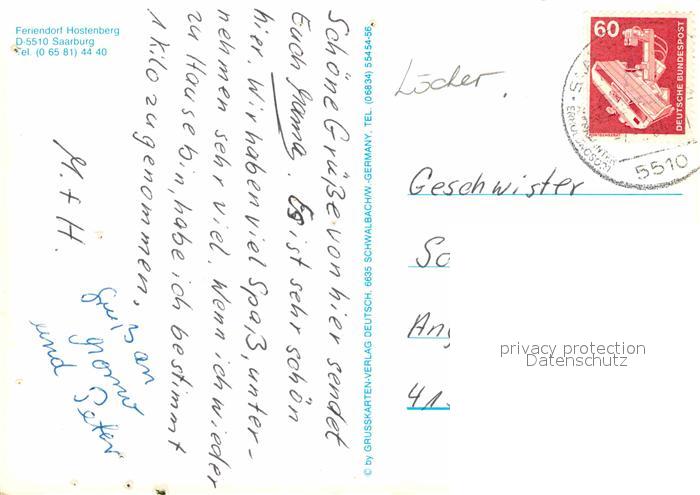 Feriendorf Hostenberg
D-5510 Saarburg
Tel. (0 65 81) 44 40
Schöne Grüße von hier sendet
Euch Mama. Es ist sehr schön
hier. Wir haben viel Spaß, unter-
nehmen sehr viel. Wenn ich wieder
zu Hause bin, habe ich bestimmt
1 kilo zugenommen.
M. + H.
Gruß an
und Peter
© by GRUSSKARTEN-VERLAG DEUTSCH, 6635 SCHWALBACH/W.-GERMANY, TEL. (06834) 55454-56
Löcher.
60
DEUTSCHE BUNDESPOST
5510
Geschwister
So
An
41.
privacy protection
Datenschutz